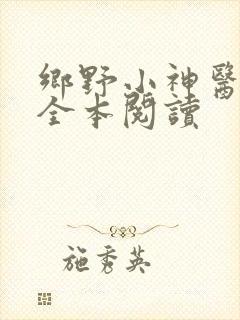 鄉野小神醫
全本閱讀
施秀英